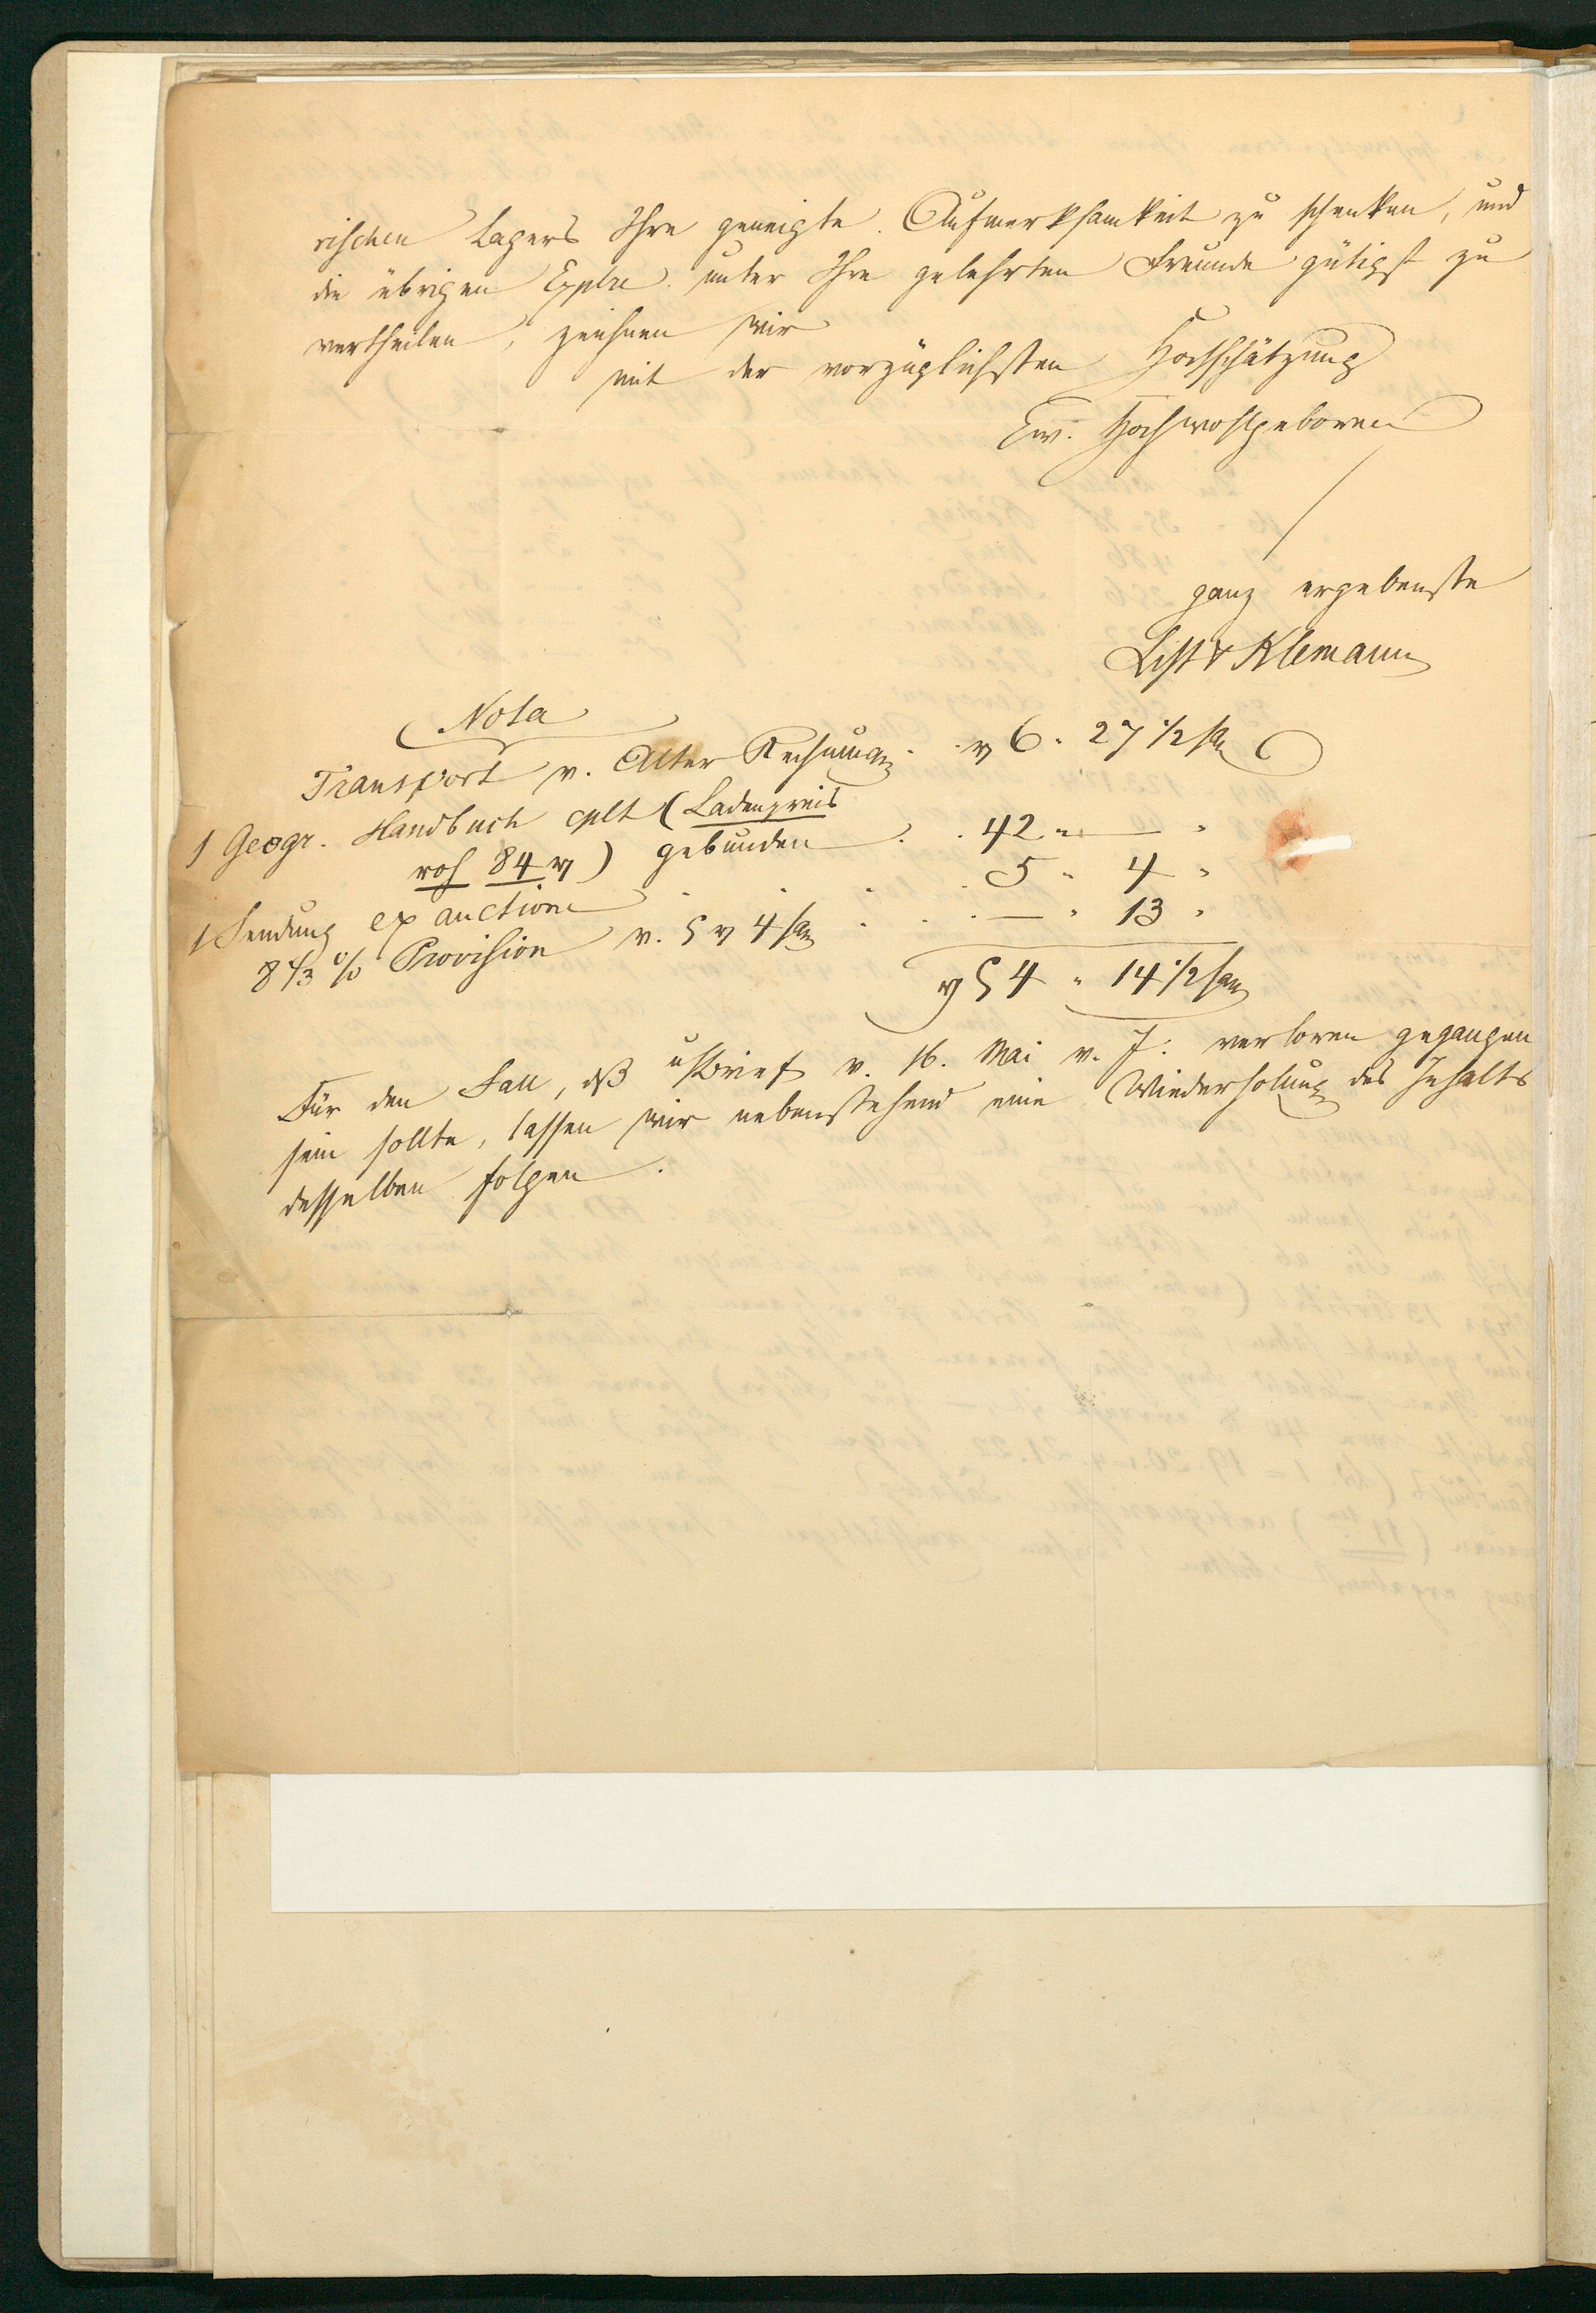 rischen Lagers Ihre geneigte Aufmerksamkeit zu schenken, und
die übrigen Explre. unter Ihre gelehrten Freunde gütigst zu
vertheilen, zeichnen wir
mit der vorzüglichsten Hochschätzung
Ew. Hochwohlgeboren
ganz ergebenste
List & Klemann
Nota
Transport v. Alter Rechnung . . rℓ 6 " 27 1/2 sgr
1 Geogr. Handbuch cplt (Ladenpreis
roh 84 rℓ) gebunden . . 42 " — "
1 Sendung ex auctione . . . 5 " 4 "
8 1/3 % Provision v. 5 rℓ 4 sgr . . . — " 13 "
rℓ 54 " 14 1/2 sgr
Für den Fall, dß uns Brief v. 16. Mai v. J. verloren gegangen
sein sollte, lassen wir nebenstehend eine Wiederholung des Inhalts
desselben folgen.